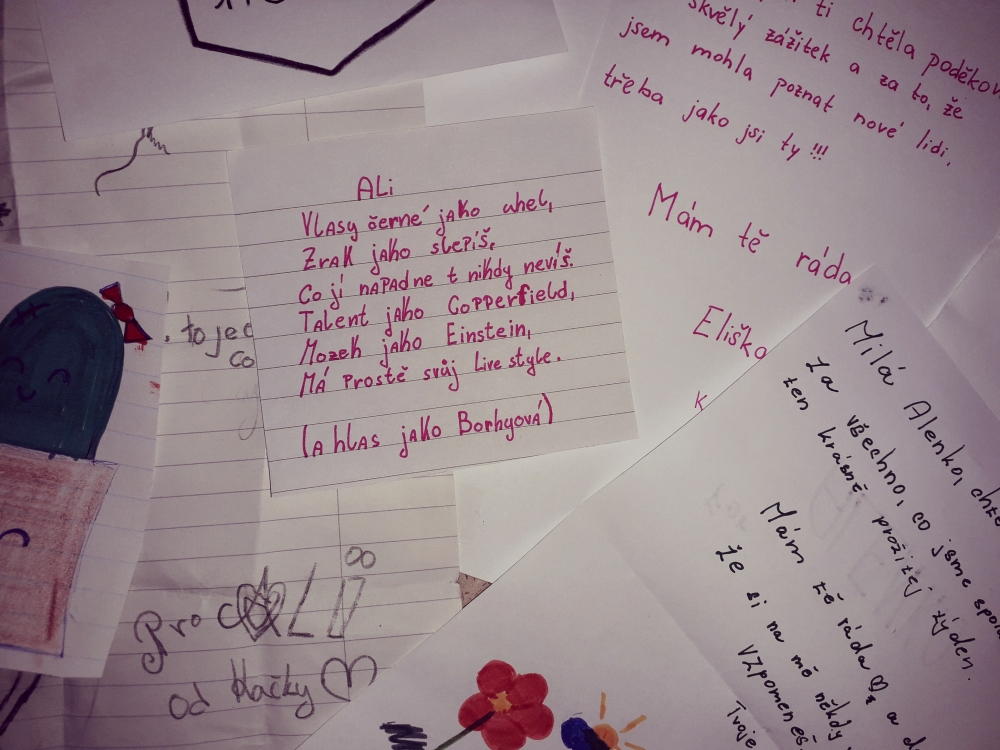 ALi
Vlasy černé jako uhel,
Zrak jako slepíš,
Co jí napadne t nikdy nevíš.
Talent jako Copperfield,
Mozek jako Einstein,
Má prostě svůj Live style.
(A hlas jako Borhyová)
ti chtěla poděkov
skvělý zážitek a za to, že
jsem mohla poznat nové lidi,
třeba jako jsi ty!!!
Mám tě ráda
Eliško
K
. to jed
co
pro ALI
od Kačky
Milá Alenko, chtě
za všechno, co jsme spolu
ten krásně prožitej týden.
Mám tě ráda a d
že si na mě někdy
vzpomeneš.
Tvoje